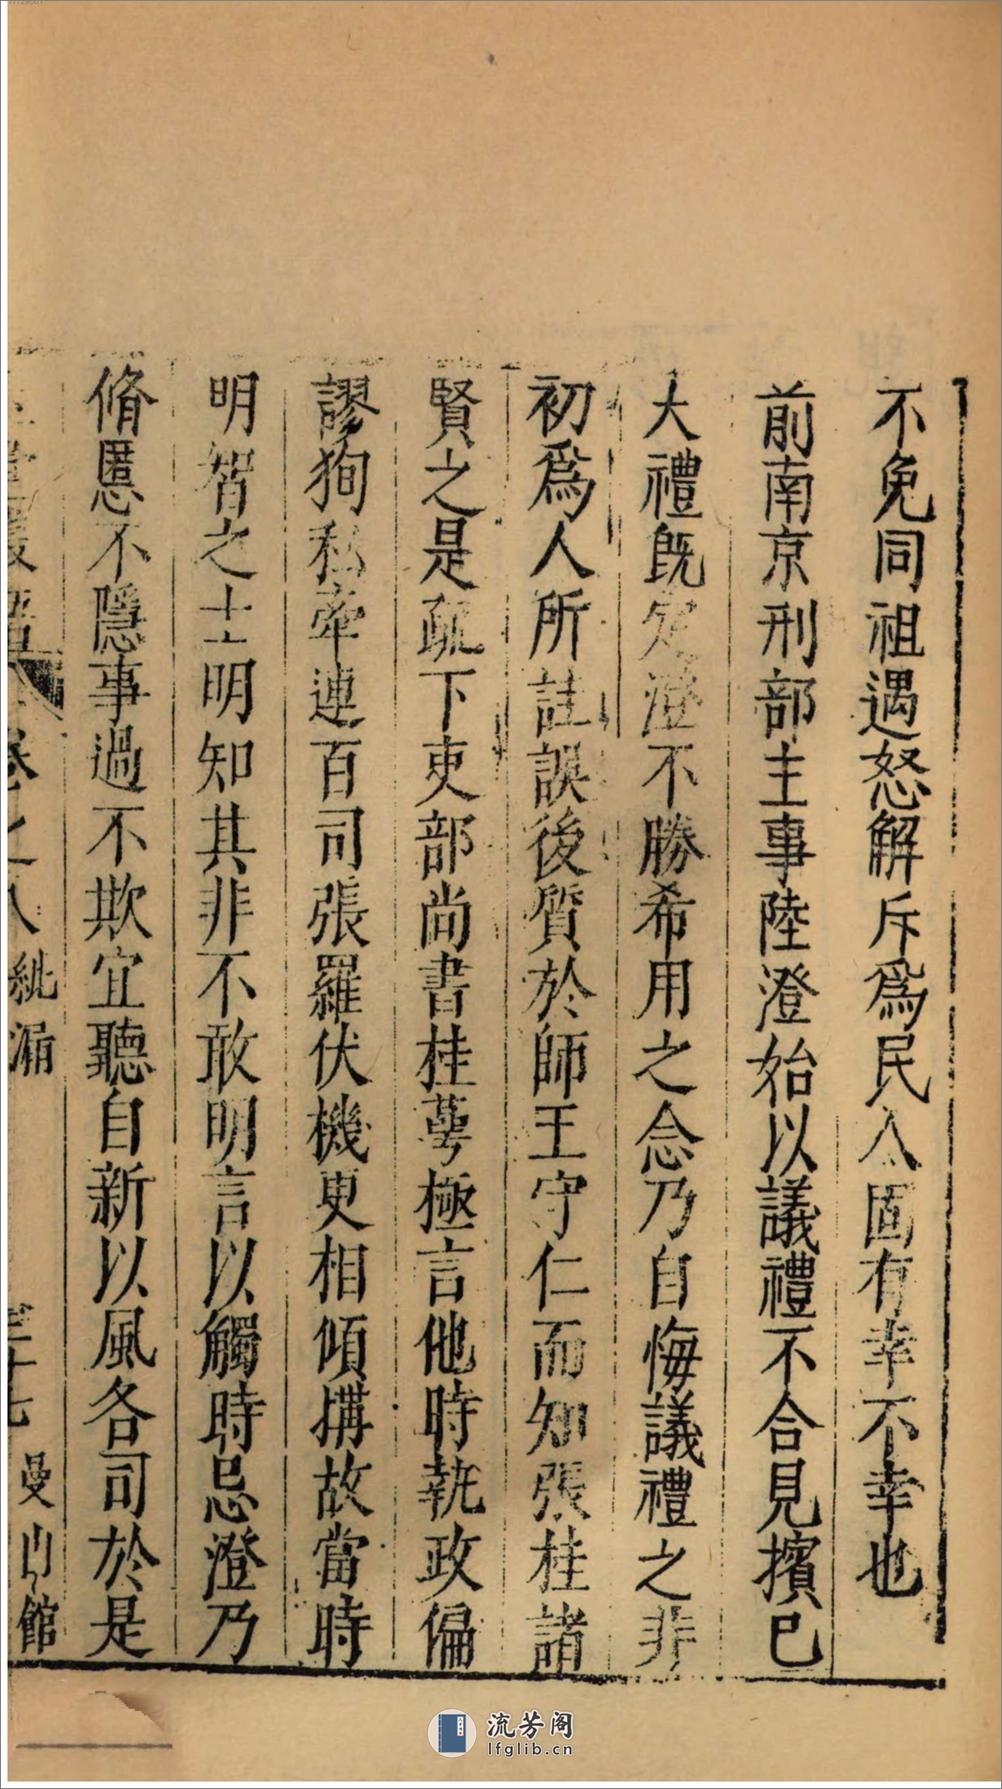 不免同祖遇怒解斥爲民人固有幸不幸也
前南京刑部主事陸澄始以議禮不合見擯已
大禮旣定澄不勝希用之念乃自悔議禮之非
初爲人所註誤後質於師王守仁而知張桂諸
賢之是疏下吏部尚書桂萼極言他時執政偏
謬狥私牽連百司張羅伏機更相傾搆故當時
明智之士明知其非不敢明言以觸時忌澄乃
脩慝不隱事過不欺宜聽自新以風各司於是
卷之八 紕漏
曼山館
流芳阁
lfglib.cn